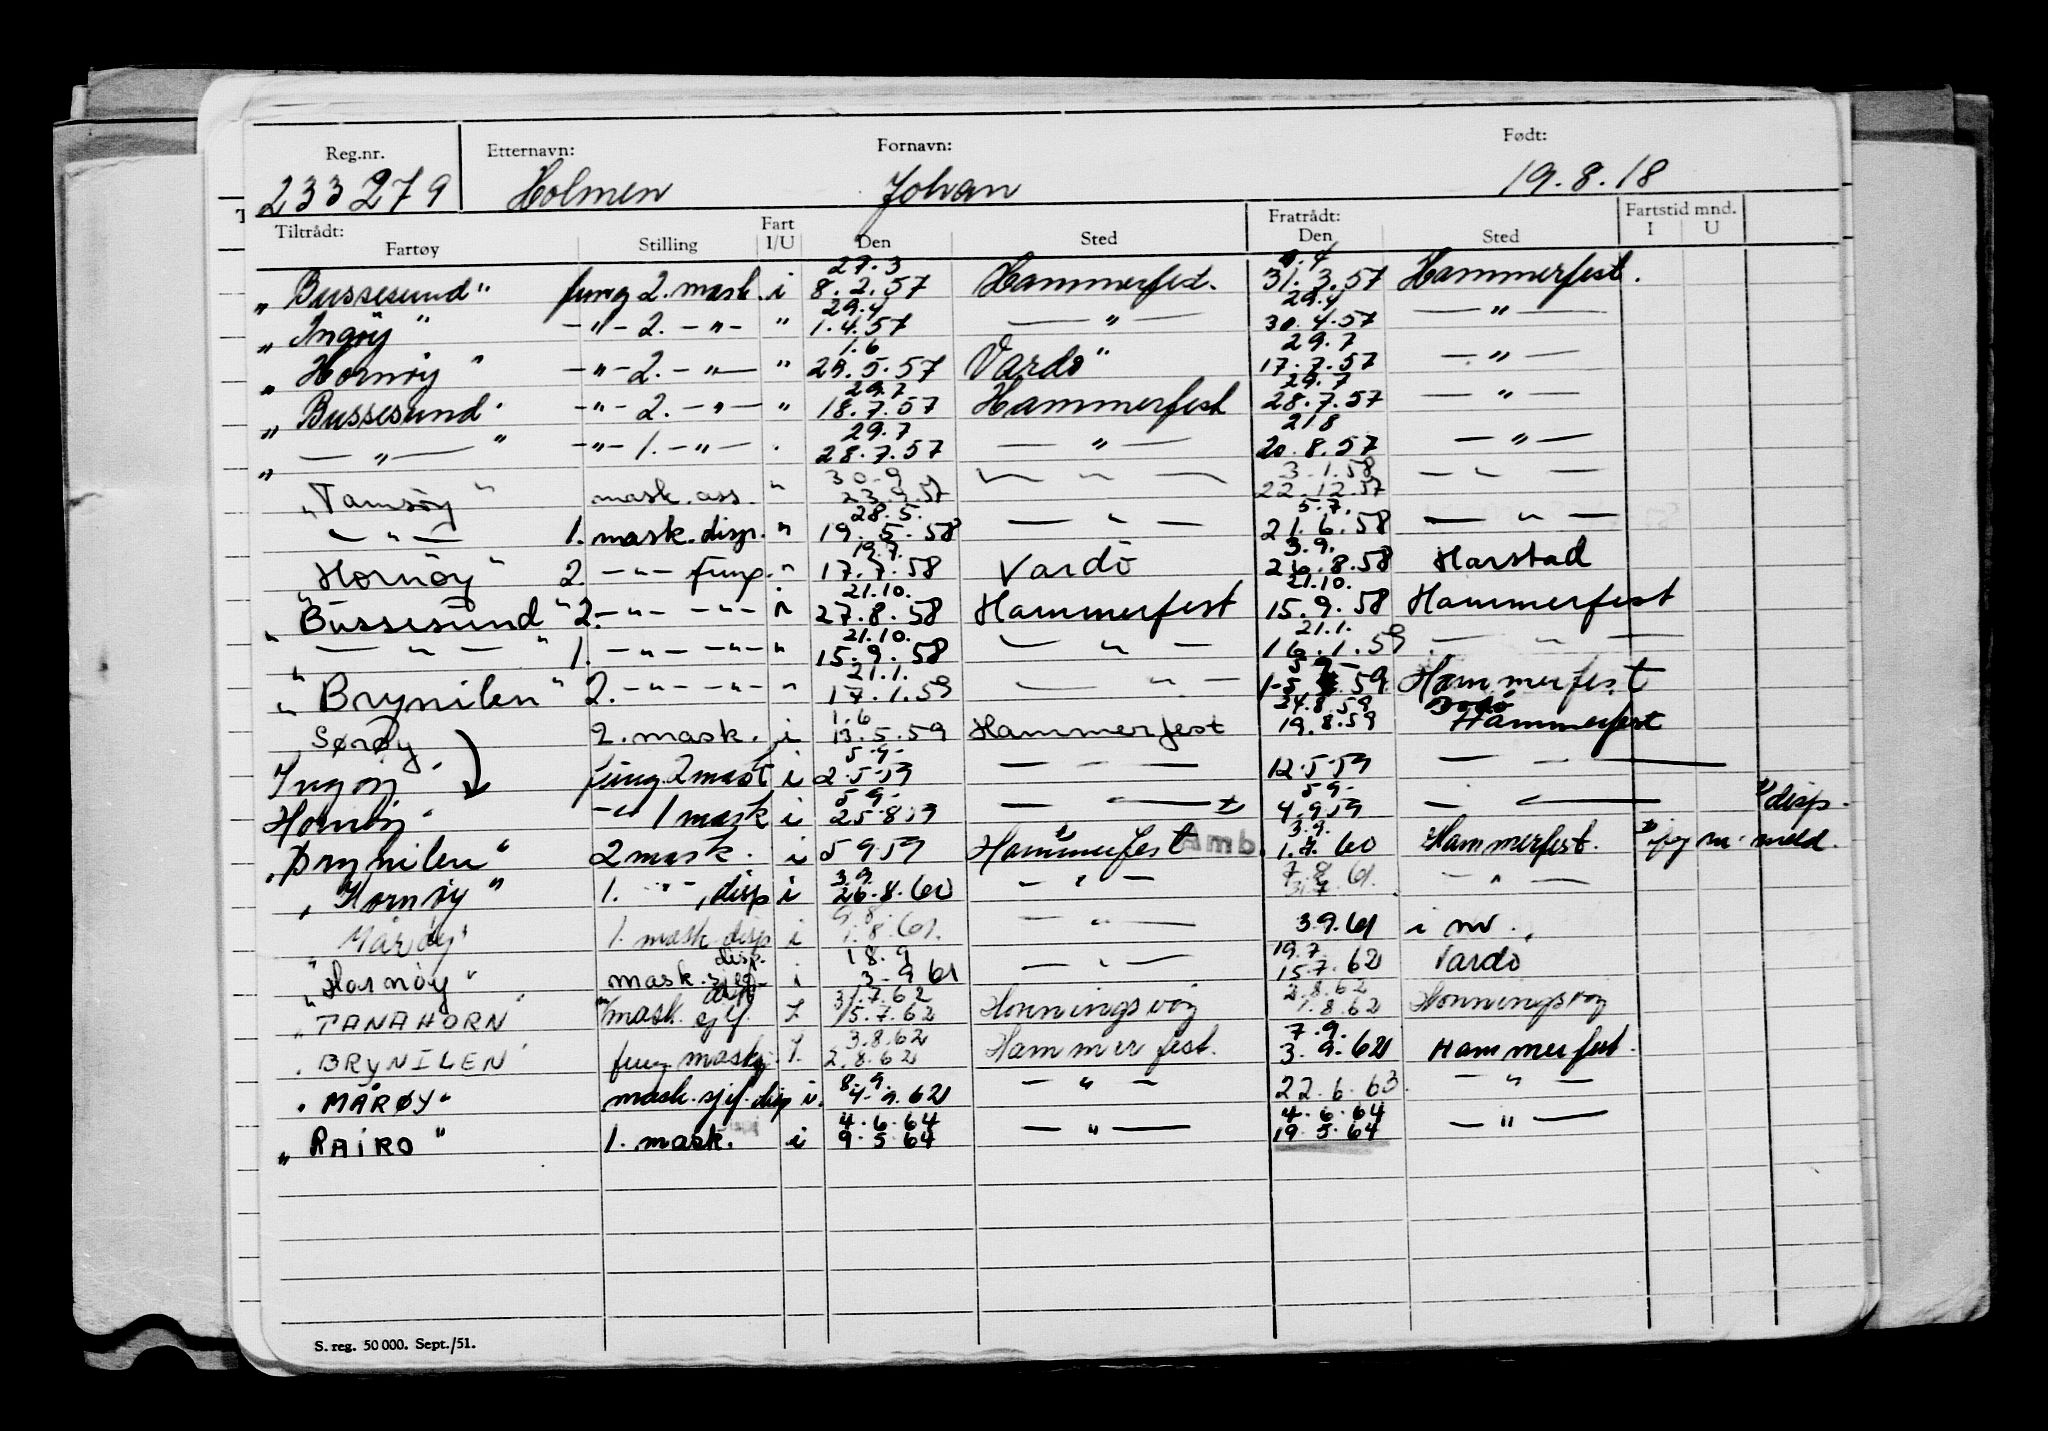 Reg.nr. Etternavn: Fornavn: Født:
233279 Holmen Johan 19.8.18
Tiltrådt: Fart Fratrådt: Fartstid mnd.
Fartøy Stilling I/U Den Sted Den Sted I U
29.3
„Bussesund" fung 2. mask. i 8.2.57 Hammerfest. 31.3.57 Hammerfest.
29.4 29.4
„Ingøy" -"- 2. -"- " 1.4.57 — " — 30.4.57 — " —
1.6 29.7
„Hornøy" -"- 2. -"- " 29.5.57 Vardø" 17.7.57 — " —
29.7 29.7
„Bussesund" -"- 2. -"- " 18.7.57 Hammerfest 28.7.57 — " —
29.7 21.8
„— " —" -"- 1. -"- . 28.7.57 — " — 20.8.57 — " —
30.9 3.1.58
„Tamsøy" mask. ass. " 23.9.57 — " — 22.12.57 — " —
28.5. 5.7.
— " — 1. mask. disp. " 19.5.58 — " — 21.6.58 — " —
19.7. 3.9.
„Hornøy" 2. -"- fung. " 17.7.58 Vardö 26.8.58 Harstad
21.10. 21.10.
„Bussesund" 2. -"- -"- " 27.8.58 Hammerfest 15.9.58 Hammerfest
21.10. 21.1.
„— " —" 1. -"- -"- " 15.9.58 — " — 16.1.59 — " —
21.1. 5.9-
„Brynilen" 2. -"- -"- " 17.1.59 — " — 1-5 59. Hammerfest
1.6 24.8.59 Bodø
Sørøy 2. mask. i 13.5.59 Hammerfest 19.8.59 Hammerfest
5-9-
Ingøy " fung. 2 mask i 2-5-59 — — — 12-5-59 — —
5-9- 5-9-
Hornøy " -"- 1 mask i 25-8-59 — — 4.9.59 — — disp.
3.9.
„Brynilen" 2 mask. i 5 9 59 Hammerfest Amb. 1.7.60 Hammerfest. jeg m. meld.
3.9 7.8
„Hornøy" 1. -"-, disp i 26.8.60 — " — 31.7.61. — " —
„Mårøy" 1. mask disp i 1.8.61. — " — 3.9.61 i nv.
disp. 18.9 19.7
„Hornøy" mask. sjef i 3-9 61 — " — 15.7.62 Vardø
31.7.62 2.8.62
„TANAHORN" mask. sjef. I 15.7.62 Honningsvåg 1.8.62 Honningsvåg
3.8.62 7.9.
„BRYNILEN" fung maskj. I. 2.8.62 Hammerfest. 3.9.62 Hammerfest.
8.9.
„MÅRØY" mask. sjef. disp i. 4.9.62 — " — 22.6.63. — " —
4.6.64 4.6.64
„RAIRO" 1. mask. i 9.5.64 — " — 19.5.64 — " —
S. reg. 50 000. Sept./51.